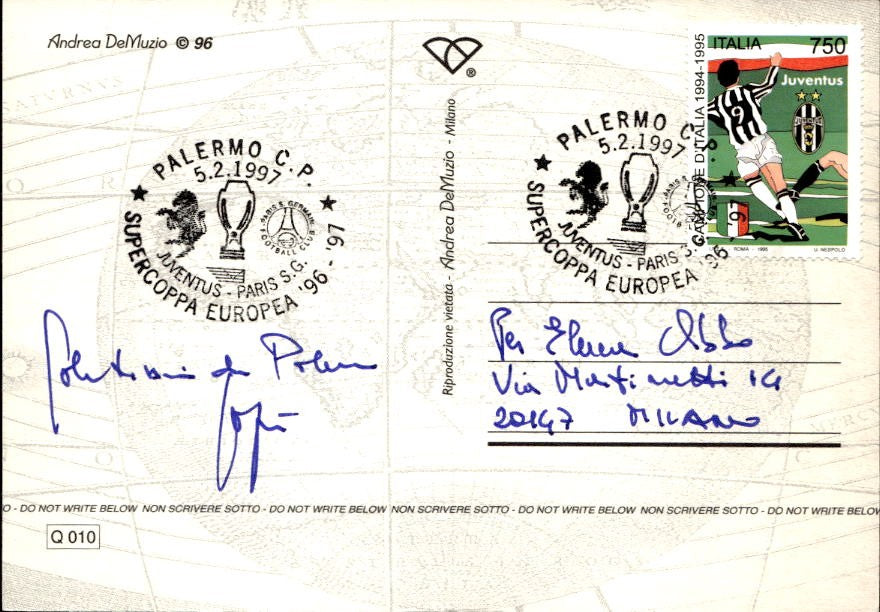 Andrea DeMuzio © 96
®
Riproduzione vietata - Andrea DeMuzio - Milano
PALERMO C.P.
5.2.1997
PARIS S. GERMAIN
FOOTBALL CLUB
JUVENTUS - PARIS S.G.
SUPERCOPPA EUROPEA '96 - '97
PALERMO C.P.
5.2.1997
JUVENTUS - PARIS S.G.
SUPERCOPPA EUROPEA '96 - '97
ITALIA 750
CAMPIONE D'ITALIA 1994-1995
Juventus
9
ROMA - 1995 U. NESPOLO
da
Per
Via Martinetti 14
20147 MILANO
O - DO NOT WRITE BELOW NON SCRIVERE SOTTO - DO NOT WRITE BELOW NON SCRIVERE SOTTO - DO NOT WRITE BELOW NON SCRIVERE SOTTO - DO NOT WRITE BELOW NON SCRIVERE SOTTO - DO NOT WRITE BEL
Q 010